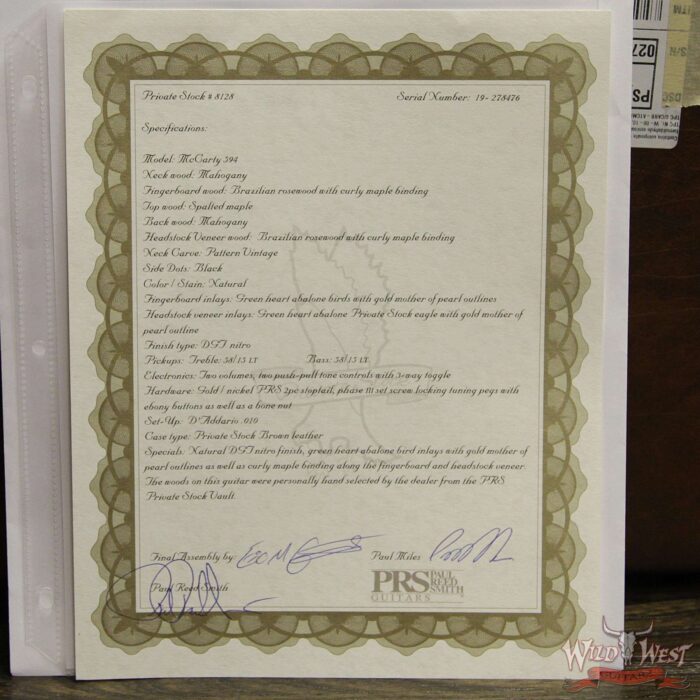 Private Stock # 8128 Serial Number: 19-278476
Specifications:
Model: McCarty 594
Neck wood: Mahogany
Fingerboard wood: Brazilian rosewood with curly maple binding
Top wood: Spalted maple
Back wood: Mahogany
Headstock Veneer wood: Brazilian rosewood with curly maple binding
Neck Carve: Pattern Vintage
Side Dots: Black
Color / Stain: Natural
Fingerboard inlays: Green heart abalone birds with gold mother of pearl outlines
Headstock veneer inlays: Green heart abalone Private Stock eagle with gold mother of
pearl outline
Finish type: DGT nitro
Pickups: Treble: 58/15 LT Bass: 58/15 LT
Electronics: Two volumes, two push-pull tone controls with 3-way toggle
Hardware: Gold / nickel PRS 2pc stoptail, phase III set screw locking tuning pegs with
ebony buttons as well as a bone nut
Set-Up: D'Addario .010
Case type: Private Stock Brown leather
Specials: Natural DGT nitro finish, green heart abalone bird inlays with gold mother of
pearl outlines as well as curly maple binding along the fingerboard and headstock veneer.
The woods on this guitar were personally hand selected by the dealer from the PRS
Private Stock Vault.
Final Assembly by: Paul Miles
Paul Reed Smith
PRS PAUL REED SMITH
GUITARS
WILD WEST
GUITARS
ITM
S/N
027
PS